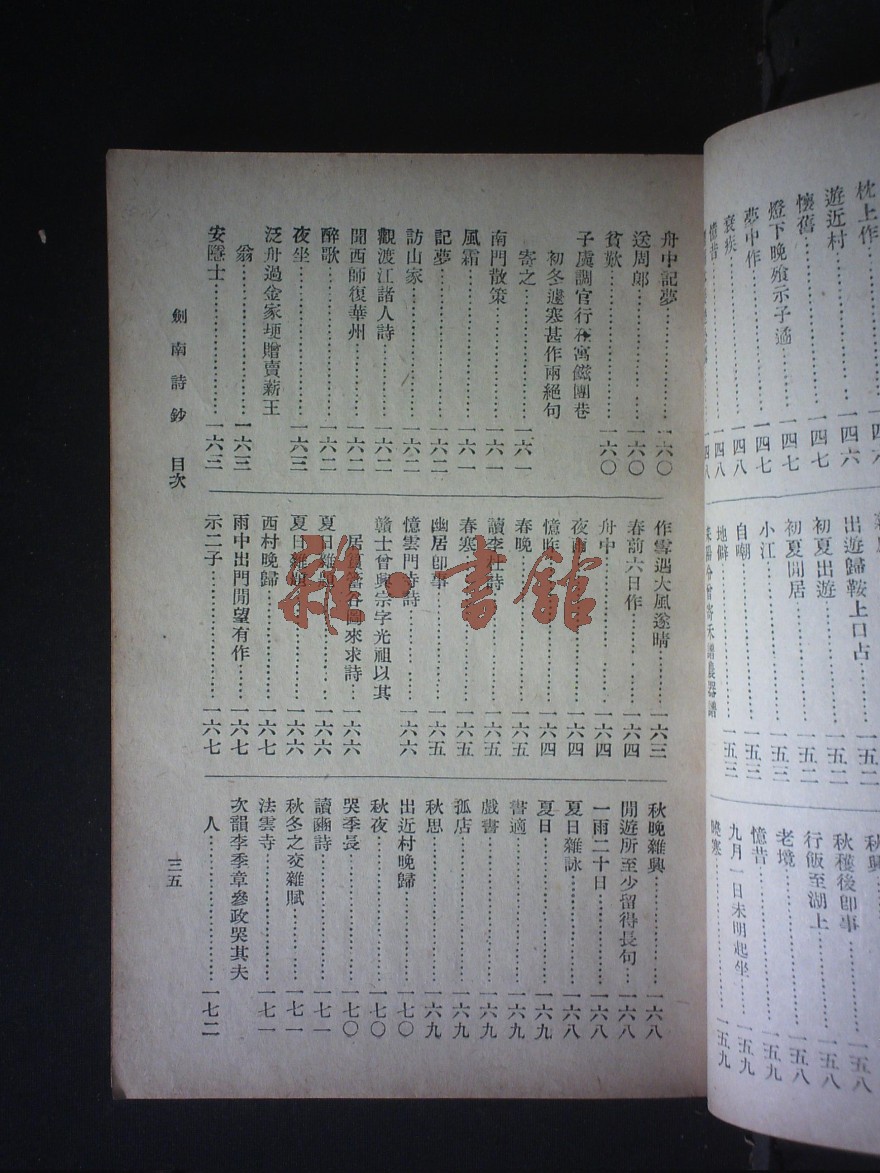 舟中記夢……一六〇
送周郎……一六〇
貧歎……一六〇
子虡調官行在寓鹺團巷
初冬遽寒甚作兩絕句
寄之……一六一
南門散策……一六一
風霜……一六一
記夢……一六二
訪山家……一六二
觀渡江諸人詩……一六二
聞西師復華州……一六二
醉歌……一六二
夜坐……一六三
泛舟過金家埂贈賣薪王
翁……一六三
安隱士……一六三
作雪遇大風遂晴……一六三
春前六日作……一六四
舟中……一六四
夜雨……一六四
憶昨……一六四
春晚……一六五
讀李杜詩……一六五
春寒……一六五
幽居卽事……一六五
憶雲門寺詩……一六六
贛士曾興宗字光祖以其
居筠齋各圖來求詩……一六六
夏日雜題……一六六
夏日雜題……一六六
西村晚歸……一六七
雨中出門閒望有作……一六七
示二子……一六七
秋晚雜興……一六八
閒遊所至少留得長句……一六八
一雨二十日……一六八
夏日雜詠……一六八
夏日……一六九
書適……一六九
戲書……一六九
孤店……一六九
秋思……一六九
出近村晚歸……一七〇
秋夜……一七〇
哭季長……一七〇
讀豳詩……一七一
秋冬之交雜賦……一七一
法雲寺……一七一
次韻李季章參政哭其夫
人……一七二
劍南詩鈔 目次
三五
枕上作
遊近村……一四六
懷舊……一四七
燈下晚飧示子遹……一四七
夢中作……一四七
衰疾……一四八
憶昔……一四八
出遊歸鞍上口占……一五二
初夏出遊……一五二
初夏閒居……一五二
小江……一五三
自嘲……一五三
地僻……一五三
秋興……一五八
秋穫後卽事……一五八
行飯至湖上……一五八
老境……一五八
憶昔……一五九
九月一日未明起坐……一五九
曉寒……一五九
雜·書館